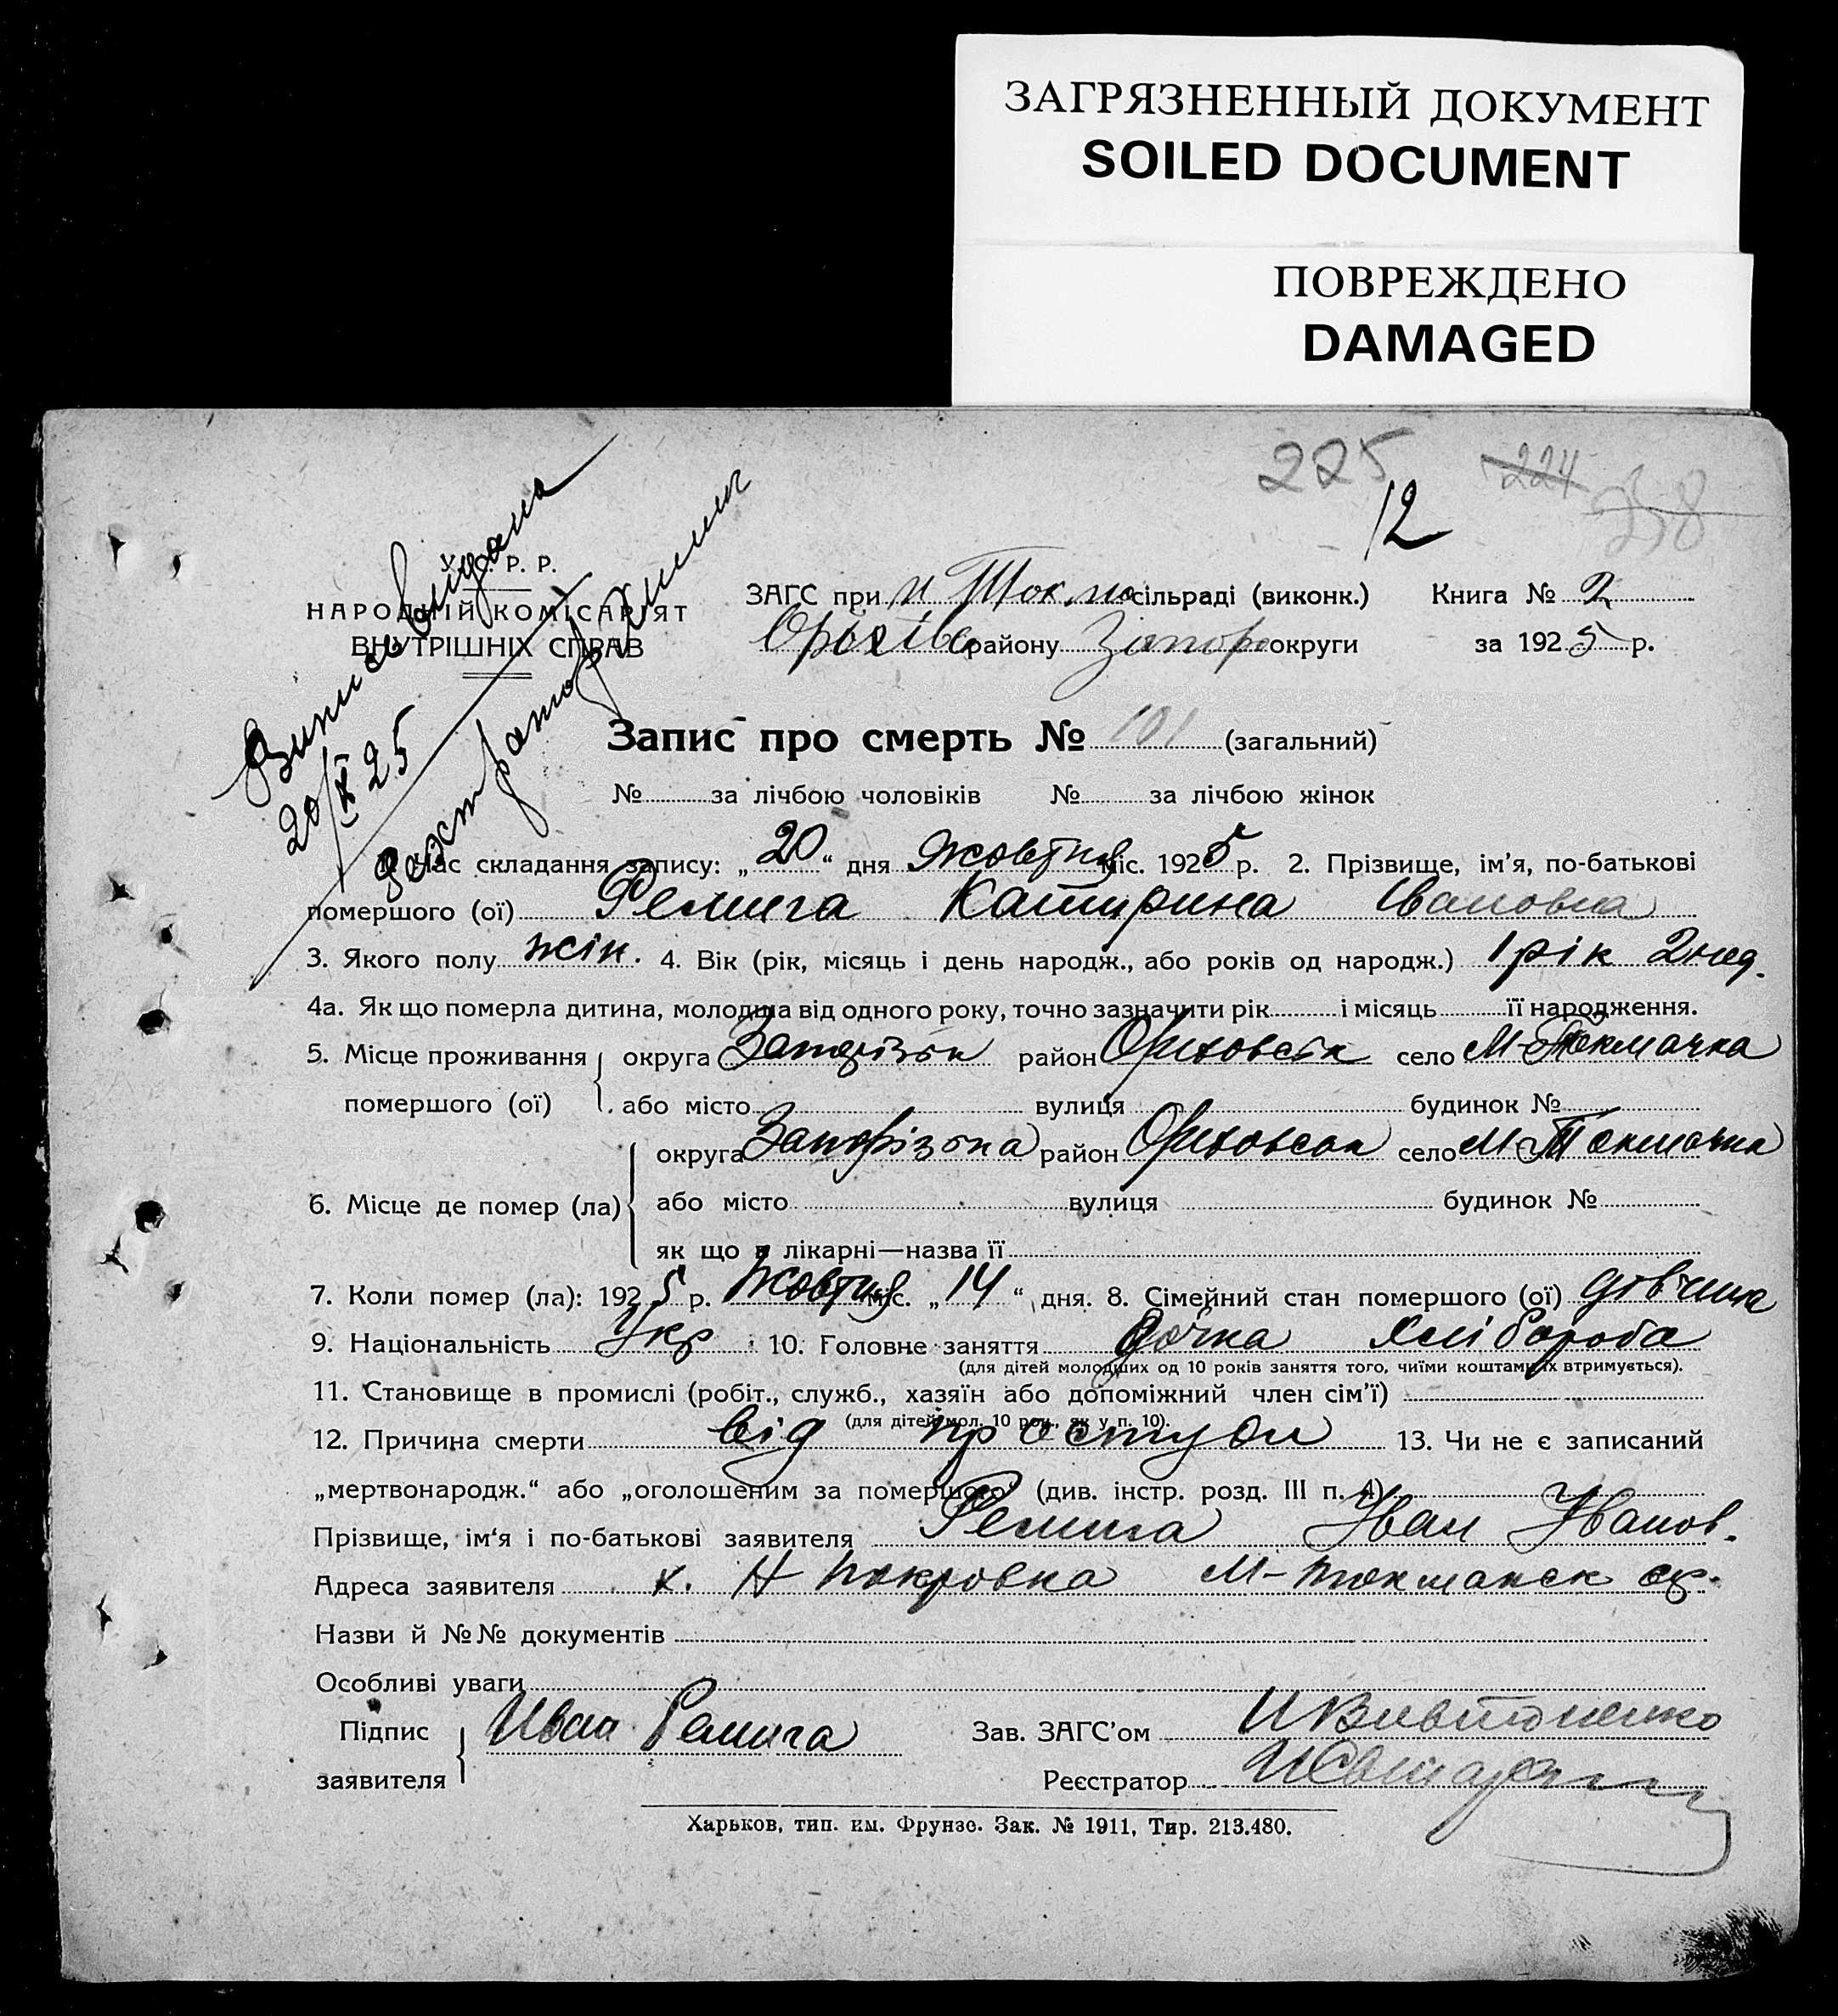 ЗАГРЯЗНЕННЫЙ ДОКУМЕНТ
SOILED DOCUMENT
ПОВРЕЖДЕНО
DAMAGED
225 224
12
Випись видана
20/X 25
У. С. Р. Р.
НАРОДНІЙ КОМІСАРІЯТ
ВНУТРІШНІХ СПРАВ
ЗАГС при М Токма сільраді (виконк.) Книга № 2
Оріхів району Запор округи за 1925 р.
Запис про смерть № 101 (загальний)
№ за лічбою чоловіків № за лічбою жінок
1. Час складання запису: „20“ дня жовтня міс. 1925 р. 2. Прізвище, ім’я, по-батькові
помершого (ої) Ремига Катирина Івановна
3. Якого полу жін. 4. Вік (рік, місяць і день народж., або років од народж.) 1 рік 2 нед.
4а. Як що померла дитина, молодша від одного року, точно зазначити рік і місяць її народження.
5. Місце проживання помершого (ої) округа район Ориховськ село М-Токмачка
або місто вулиця будинок №
6. Місце де помер (ла) округа район Ориховськ село М-Токмачка
або місто вулиця будинок №
як що в лікарні—назва її
7. Коли помер (ла): 1925 р. жовтня міс. „14“ дня. 8. Сімейний стан помершого (ої) дівчина
9. Національність Укр 10. Головне заняття дочка хлібороба
(для дітей молодших од 10 років заняття того, чиїми коштами їх втримується).
11. Становище в промислі (робіт., служб., хазяїн або допоміжний член сім’ї)
(для дітей мол. 10 рок., як у п. 10).
12. Причина смерти від простуди 13. Чи не є записаний
„мертвонародж.“ або „оголошеним за помершого“ (див. інстр. розд. III п. 4)
Прізвище, ім‘я і по-батькові заявителя Ремига Іван Іванов.
Адреса заявителя х. Н Покровка М-Токманск ср.
Назви й №№ документів
Особливі уваги
Підпис заявителя Иван Ремига Зав. ЗАГС’ом
Реєстратор
Харьков, тип. им. Фрунзе. Зак. № 1911, Тир. 213.480.